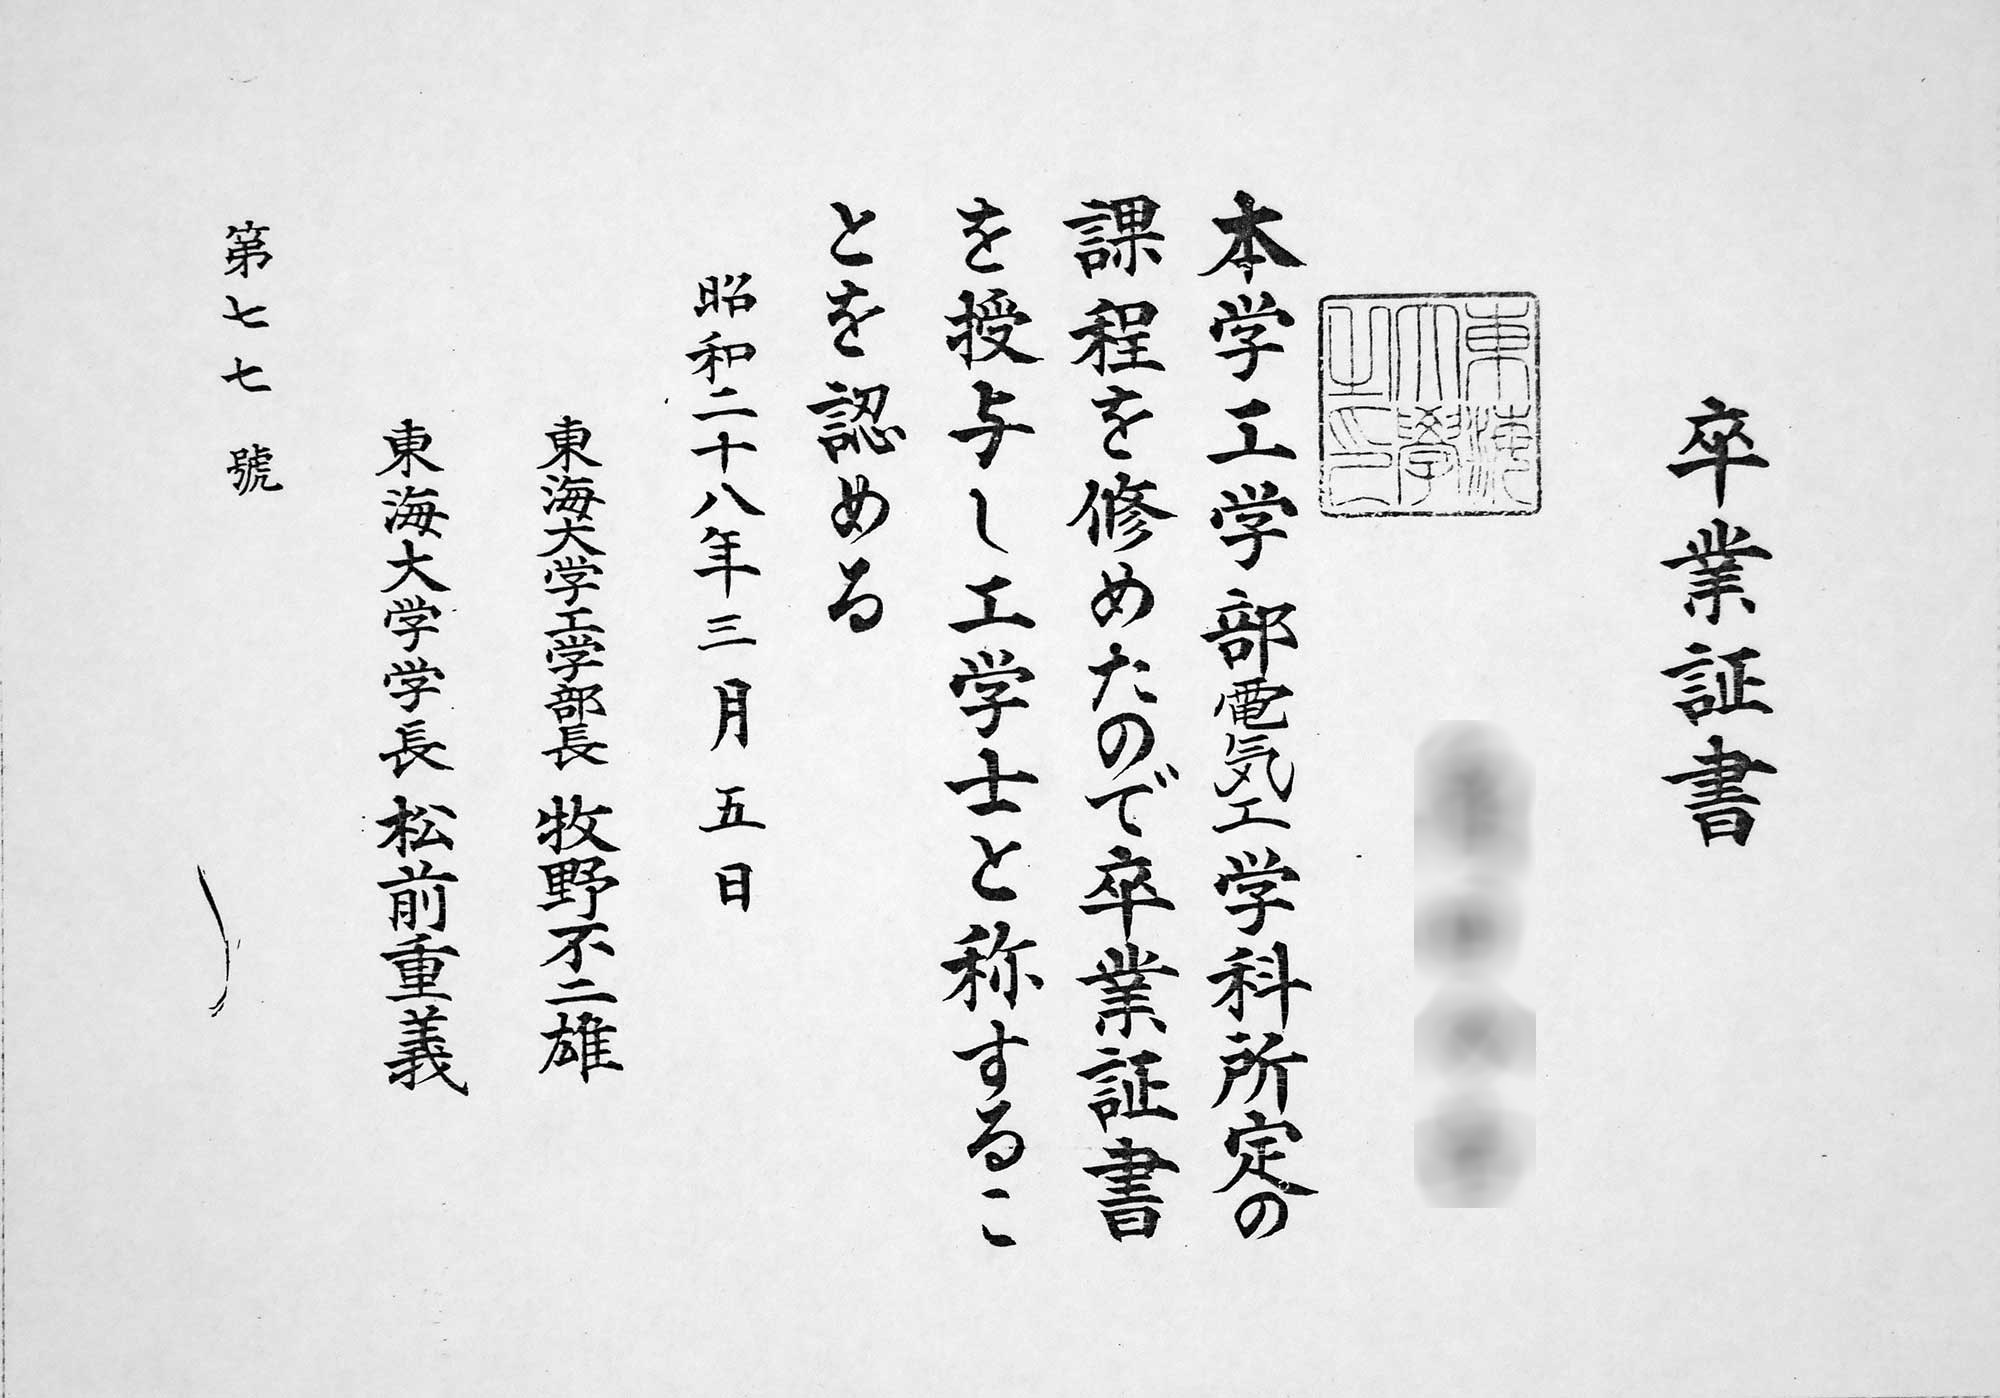 卒業証書
東海
大學
之印
本学工学部電気工学科所定の
課程を修めたので卒業証書
を授与し工学士と称するこ
とを認める
昭和二十八年三月五日
東海大学工学部長 牧野不二雄
東海大学学長 松前重義
第七七號